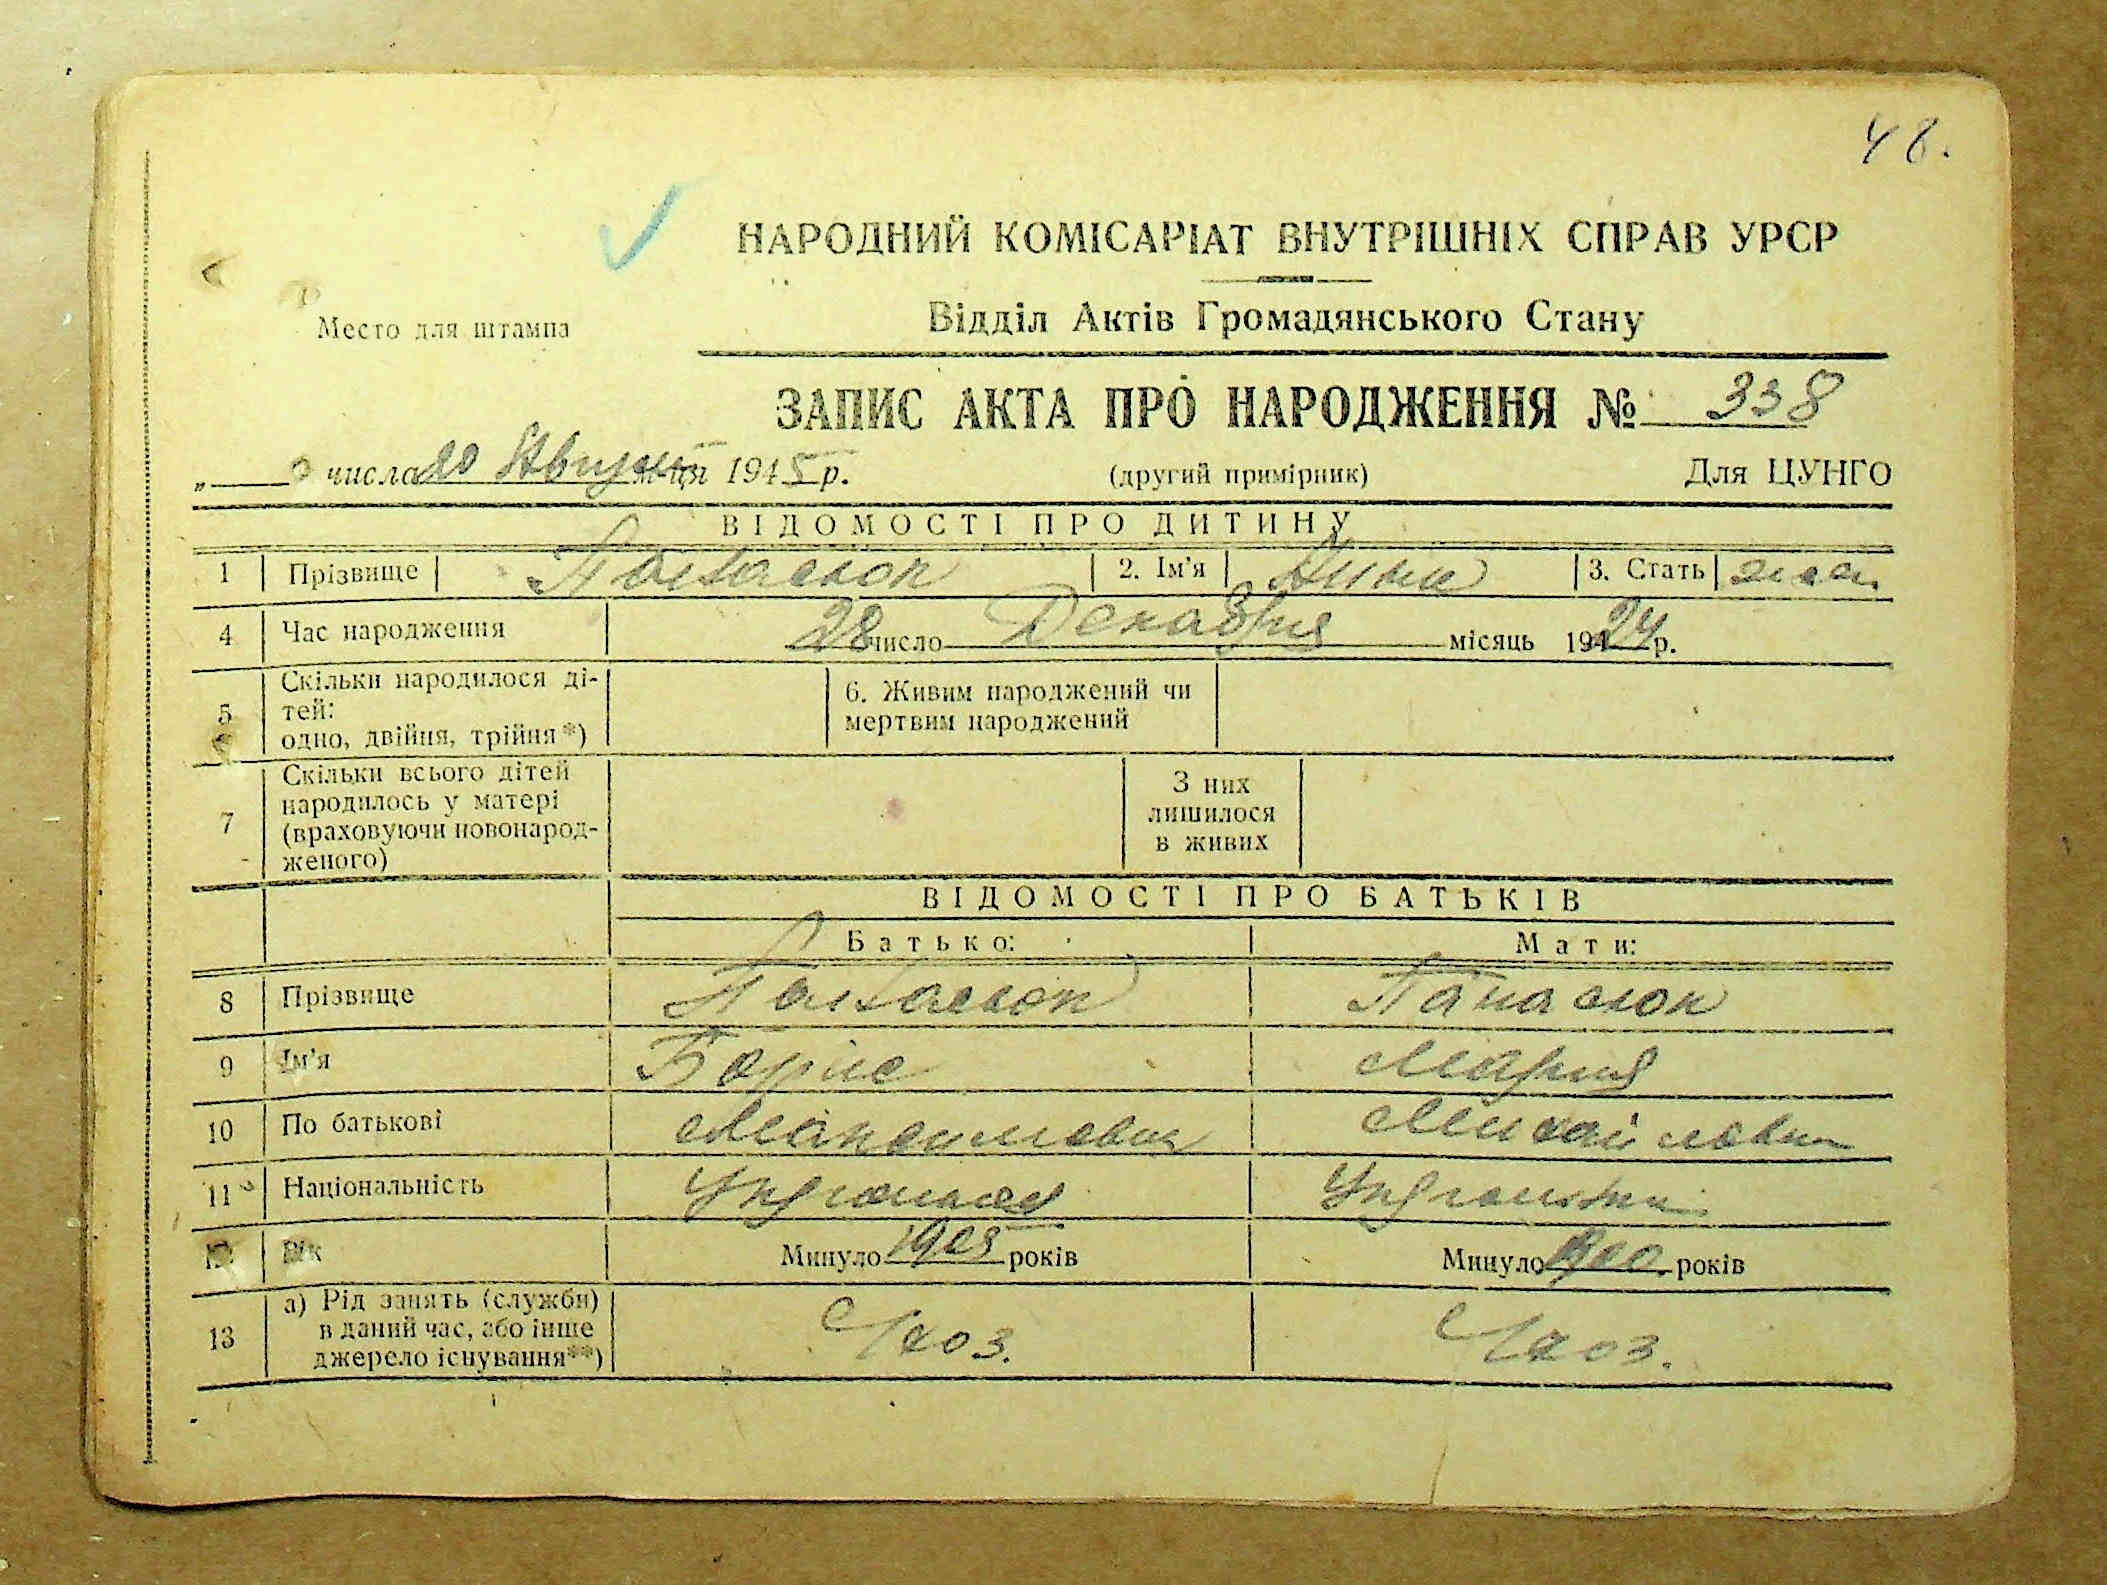 48.
НАРОДНИЙ КОМІСАРІАТ ВНУТРІШНІХ СПРАВ УРСР
Место для штампа
Відділ Актів Громадянського Стану
ЗАПИС АКТА ПРО НАРОДЖЕННЯ № 338
„ числа 20 Августа м-ця 1945 р. (другий примірник) Для ЦУНГО
ВІДОМОСТІ ПРО ДИТИНУ
1 Прізвище Панасюк 2. Ім'я Нина 3. Стать жен.
4 Час народження 28 число Декабря місяць 1924 р.
5 Скільки народилося ді-
тей:
одно, двійня, трійня*)
6. Живим народжений чи
мертвим народжений
7 Скільки всього дітей
народилось у матері
(враховуючи новонарод-
женого)
З них
лишилося
в живих
ВІДОМОСТІ ПРО БАТЬКІВ
Батько: Мати:
8 Прізвище Панасюк Панасюк
9 Ім'я Борис Мария
10 По батькові Максимович Михайловна
11 Національність Украинец Украинка
12 Вік Минуло 1905 років Минуло 1900 років
13 а) Рід занять (служби)
в даний час, або інше
джерело існування**)
С/хоз. С/хоз.